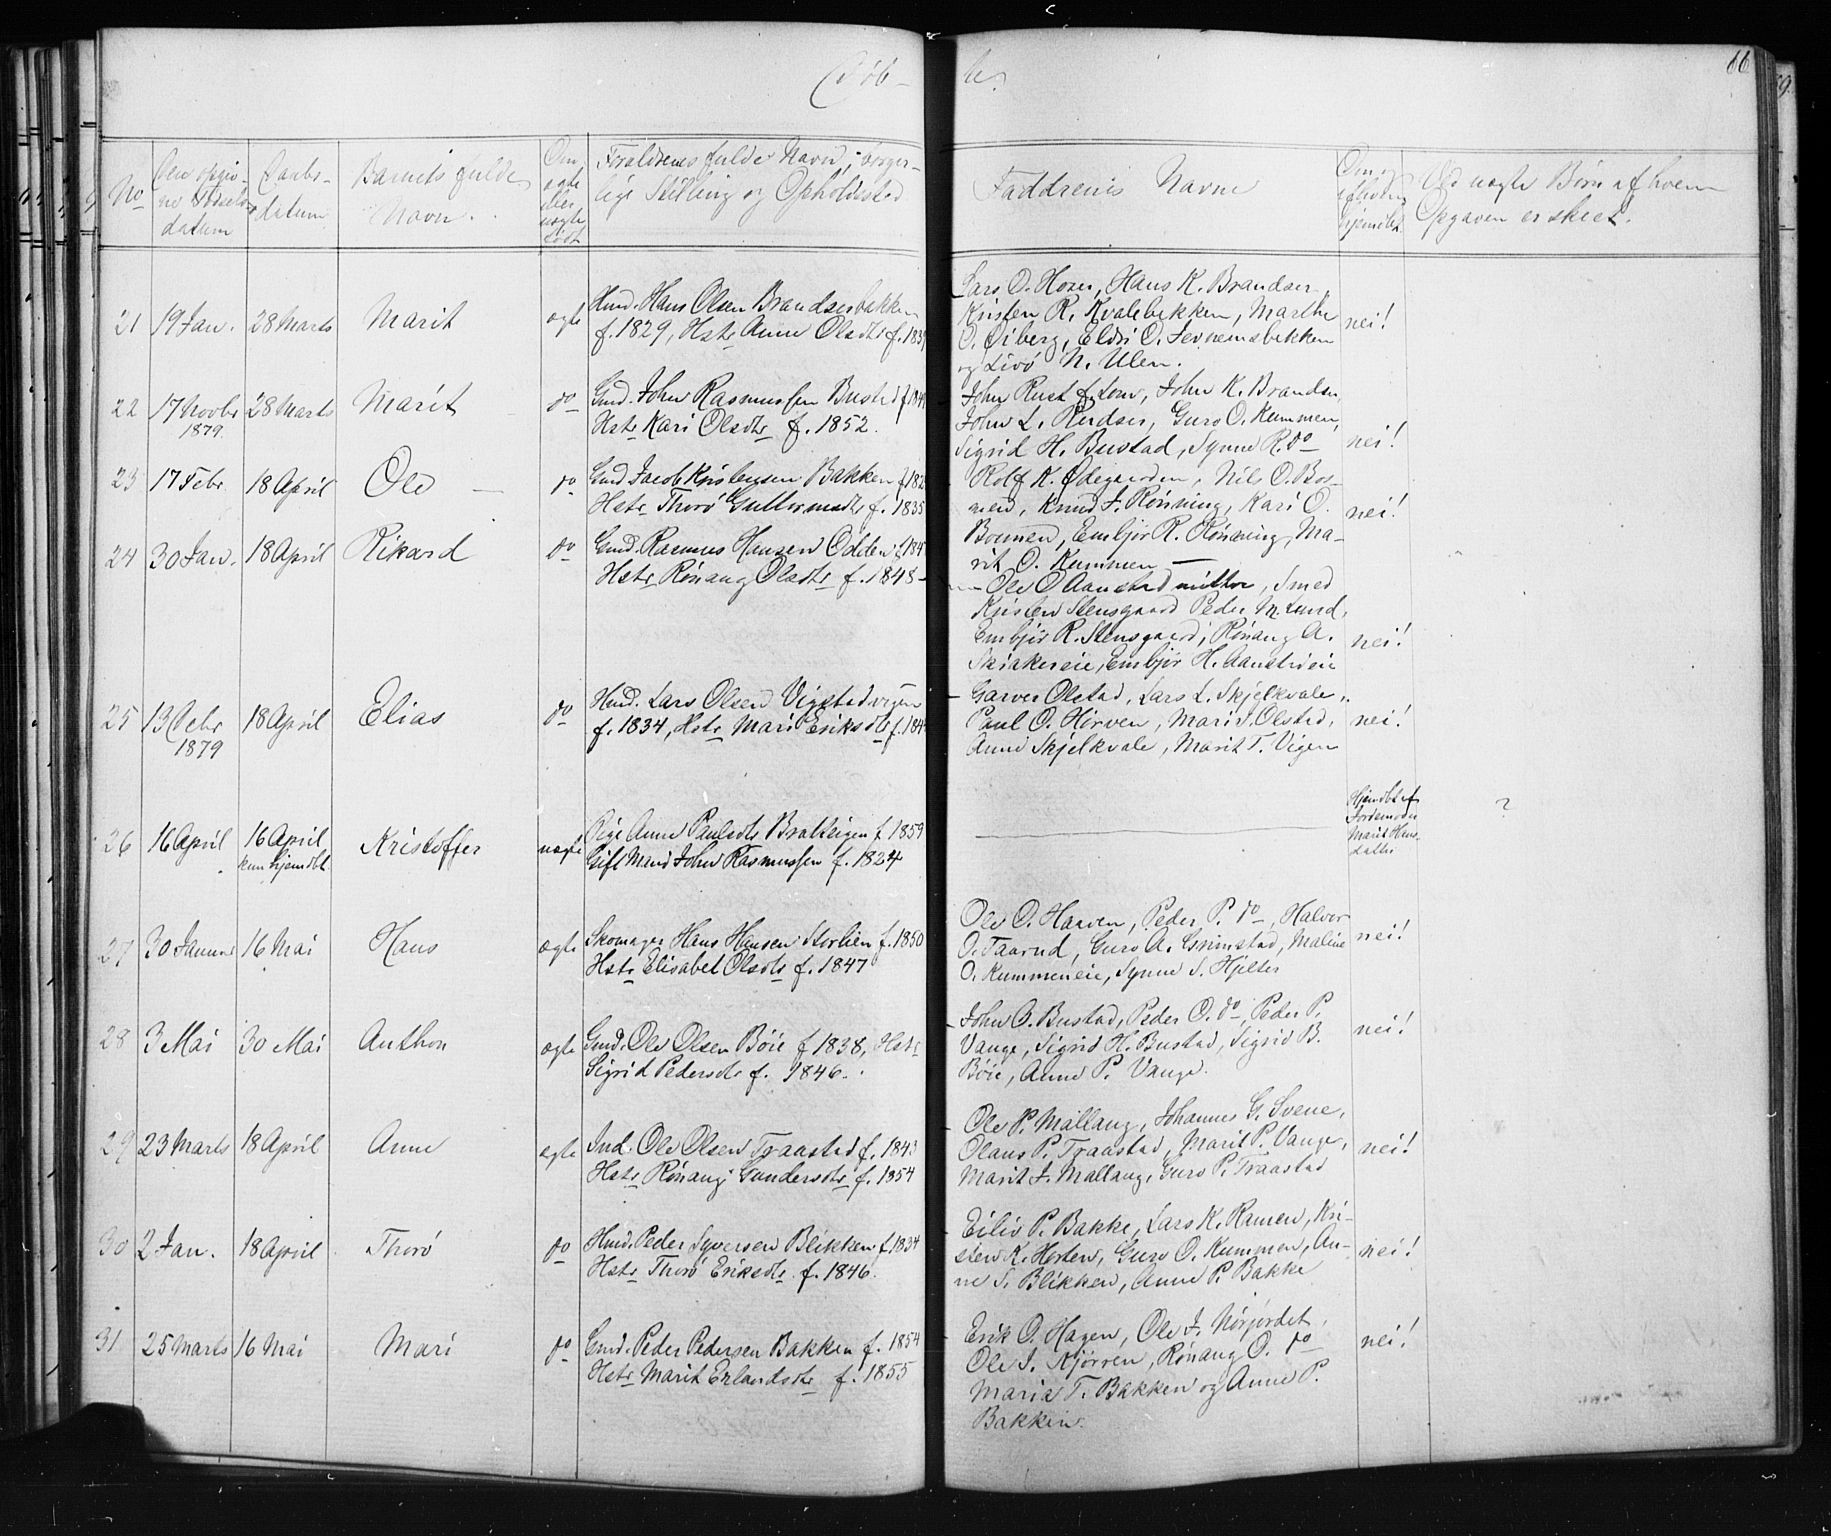 Døb-
te.
66
No
Den opgiv-
ne Fødsels-
datum
Daabs-
datum
Barnets fulde
Navn.
Om
ægte
eller
uægte
født
Forældrenes fulde Navn, borger-
lige Stilling og Opholdssted
Faddrenes Navne
Om og
af hvem
hjemdøbt.
Ved uægte Børn af hvem
Opgaven er skeet.
21 19 Jan. 28 Marts Marit ægte Hmd. Hans Olsen Brandserbakken
f. 1829, Hstr Anne Olsdtr f.
Lars O. Hoser, Hans K. Brandser,
Kristen R. Kvalebekken, Marthe
O. Øiberg, Eldri O. Jevnemsbekken
og Livô N. Ulen.
nei!
22 17 Novbr 28 Marts Marit do Gmd. John Rasmussen Bustad
1879.
Hstr Kari Olsdtr f. 1852.
John Rust f. Lom, John K. Brandser
John L. Rudser, Guro O. Kummen,
Sigrid H. Bustad, Synne R. do
nei!
23 17 Febr. 18 April Ole do Gmd Jacob Kristensen Bakken
Hstr Thorô Guttormsdtr f. 1835
Rolf K. Ødegaarden, Nils O. Bos-
men, Knud J. Rönning, Kari O.
Bosmen, Embjör R. Rönning, Ma-
rit O. Kummen
nei!
24 30 Jan. 18 April Rikard do Gmd. Rasmus Hansen Odden
Hstr Rönaug Olsdtr f. 1848
Ole O Aanstad nittre, Smed
Kristen Stensgaard Peder M. Lund,
Embjör R. Stensgaard, Rönaug A.
Skiakereie, Embjör H. Aanstadeie
nei!
25 13 Debr 18 April Elias do Hmd. Lars Olsen Vigstadvigen
1879
f. 1834, Hstr Mari Eriksdtr
Garver Olstad, Lars L. Skjelkvale,
Paul O. Hörven, Mari J. Olstad,
Anne Skjelkvale, Marit T. Vigen
nei!
26 16 April 16 April Kristoffer uægte Pige Anne Paulsdtr Bratteigen f. 1859
kun hjemdbt.
Gift Mand John Rasmussen f. 1824
Hjemdbt af
Jordemoder
Marit Hans-
datter
?
27 30 Januar 16 Mai Hans ægte Skomager Hans Hansen Storlien f. 1850
Hstr Elisabet Olsdtr f. 1847
Ole O. Haaven, Peder P. do, Halvor
O. Taarud, Guro A. Grimstad, Maline
O. Kummeneie, Synne S. Hjelter
nei!
28 3 Mai 30 Mai Anthon ægte Gmd. Ole Olsen Böie f 1838, Hstr
Sigrid Pedersdtr f. 1846.
John O. Bustad, Peder O. do, Peder P.
Vange, Sigrid H. Bustad, Sigrid B.
Böie, Anne P. Vange.
nei!
29 23 Marts 18 April Anne ægte Ind. Ole Olsen Traastad f. 1843
Hstr Rönaug Gundersdtr f. 1854
Ole P. Mallang, Johannes G. Svene,
Olaus P. Traastad, Marit P. Vange,
Marit J. Mallang, Guro P. Traastad
nei!
30 2 Jan. 18 April Thorô do Hmd. Peder Syversen Blikken f 1834
Hstr Thorô Eriksdtr f. 1846.
Eiliv P. Bakke, Lars K. Ramen, Kri-
sten K. Horten, Guro O. Kummen, An-
ne S. Blikken, Anne P. Bakke
nei!
31 25 Marts 16 Mai Mari do Gmd. Peder Pedersen Bakken f. 1854
Hstr Marit Erlandsdtr f. 1855
Erik O. Hagen, Ole J. Nörjordet,
Ole J. Kjörren, Rönaug O. do
Maria T. Bakken og Anne P.
Bakken.
nei!